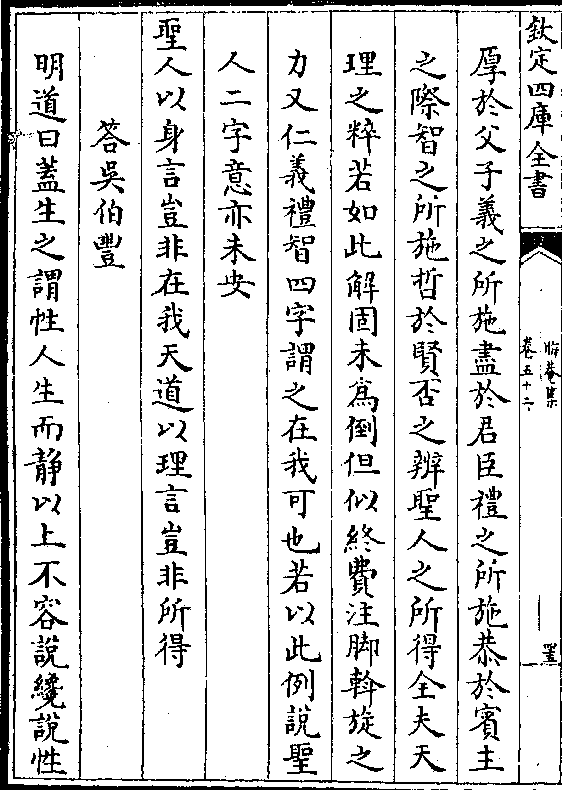 欽定四庫全書
晦菴集
卷五十二
厚於父子義之所施盡於君臣禮之所施恭於賓主
之際智之所施哲於賢否之辨聖人之所得全夫天
理之粹若如此解固未為倒但似終費注脚斡旋之
力又仁義禮智四字謂之在我可也若以此例說聖
人二字意亦未安
聖人以身言豈非在我天道以理言豈非所得
答吳伯豐
明道曰蓋生之謂性人生而静以上不容說纔說性